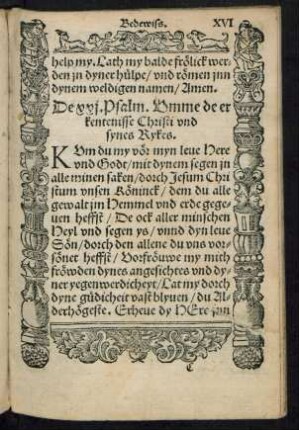 Bedewisz. XVI
help my. Lath my balde frölick wer-
den jn dyner hülpe/ vnd römen jnn
dynem weldigen namen/ Amen.
De xxj. Psalm. Vmme de er
kentenisse Christi vnd
synes Rykes.
KVm du my vör myn leue Here
vnd Godt/ mit dynem segen jn
alle minen saken/ dorch Jesum Chri
stum vnsen Köninck/ dem du alle
gewalt jm Hemmel vnd erde gege-
uen heffst/ De ock aller minschen
Heyl vnd segen ys/ vnnd dyn leue
Sön/ dorch den allene du vns vor-
sönet heffst/ Vorfröuwe my mith
fröwden dynes angesichtes vnd dy-
ner yegenwerdicheyt/ Lat my dorch
dyne güdicheit vast blyuen/ du Al-
derhögeste. Erheue dy HEre jnn
C